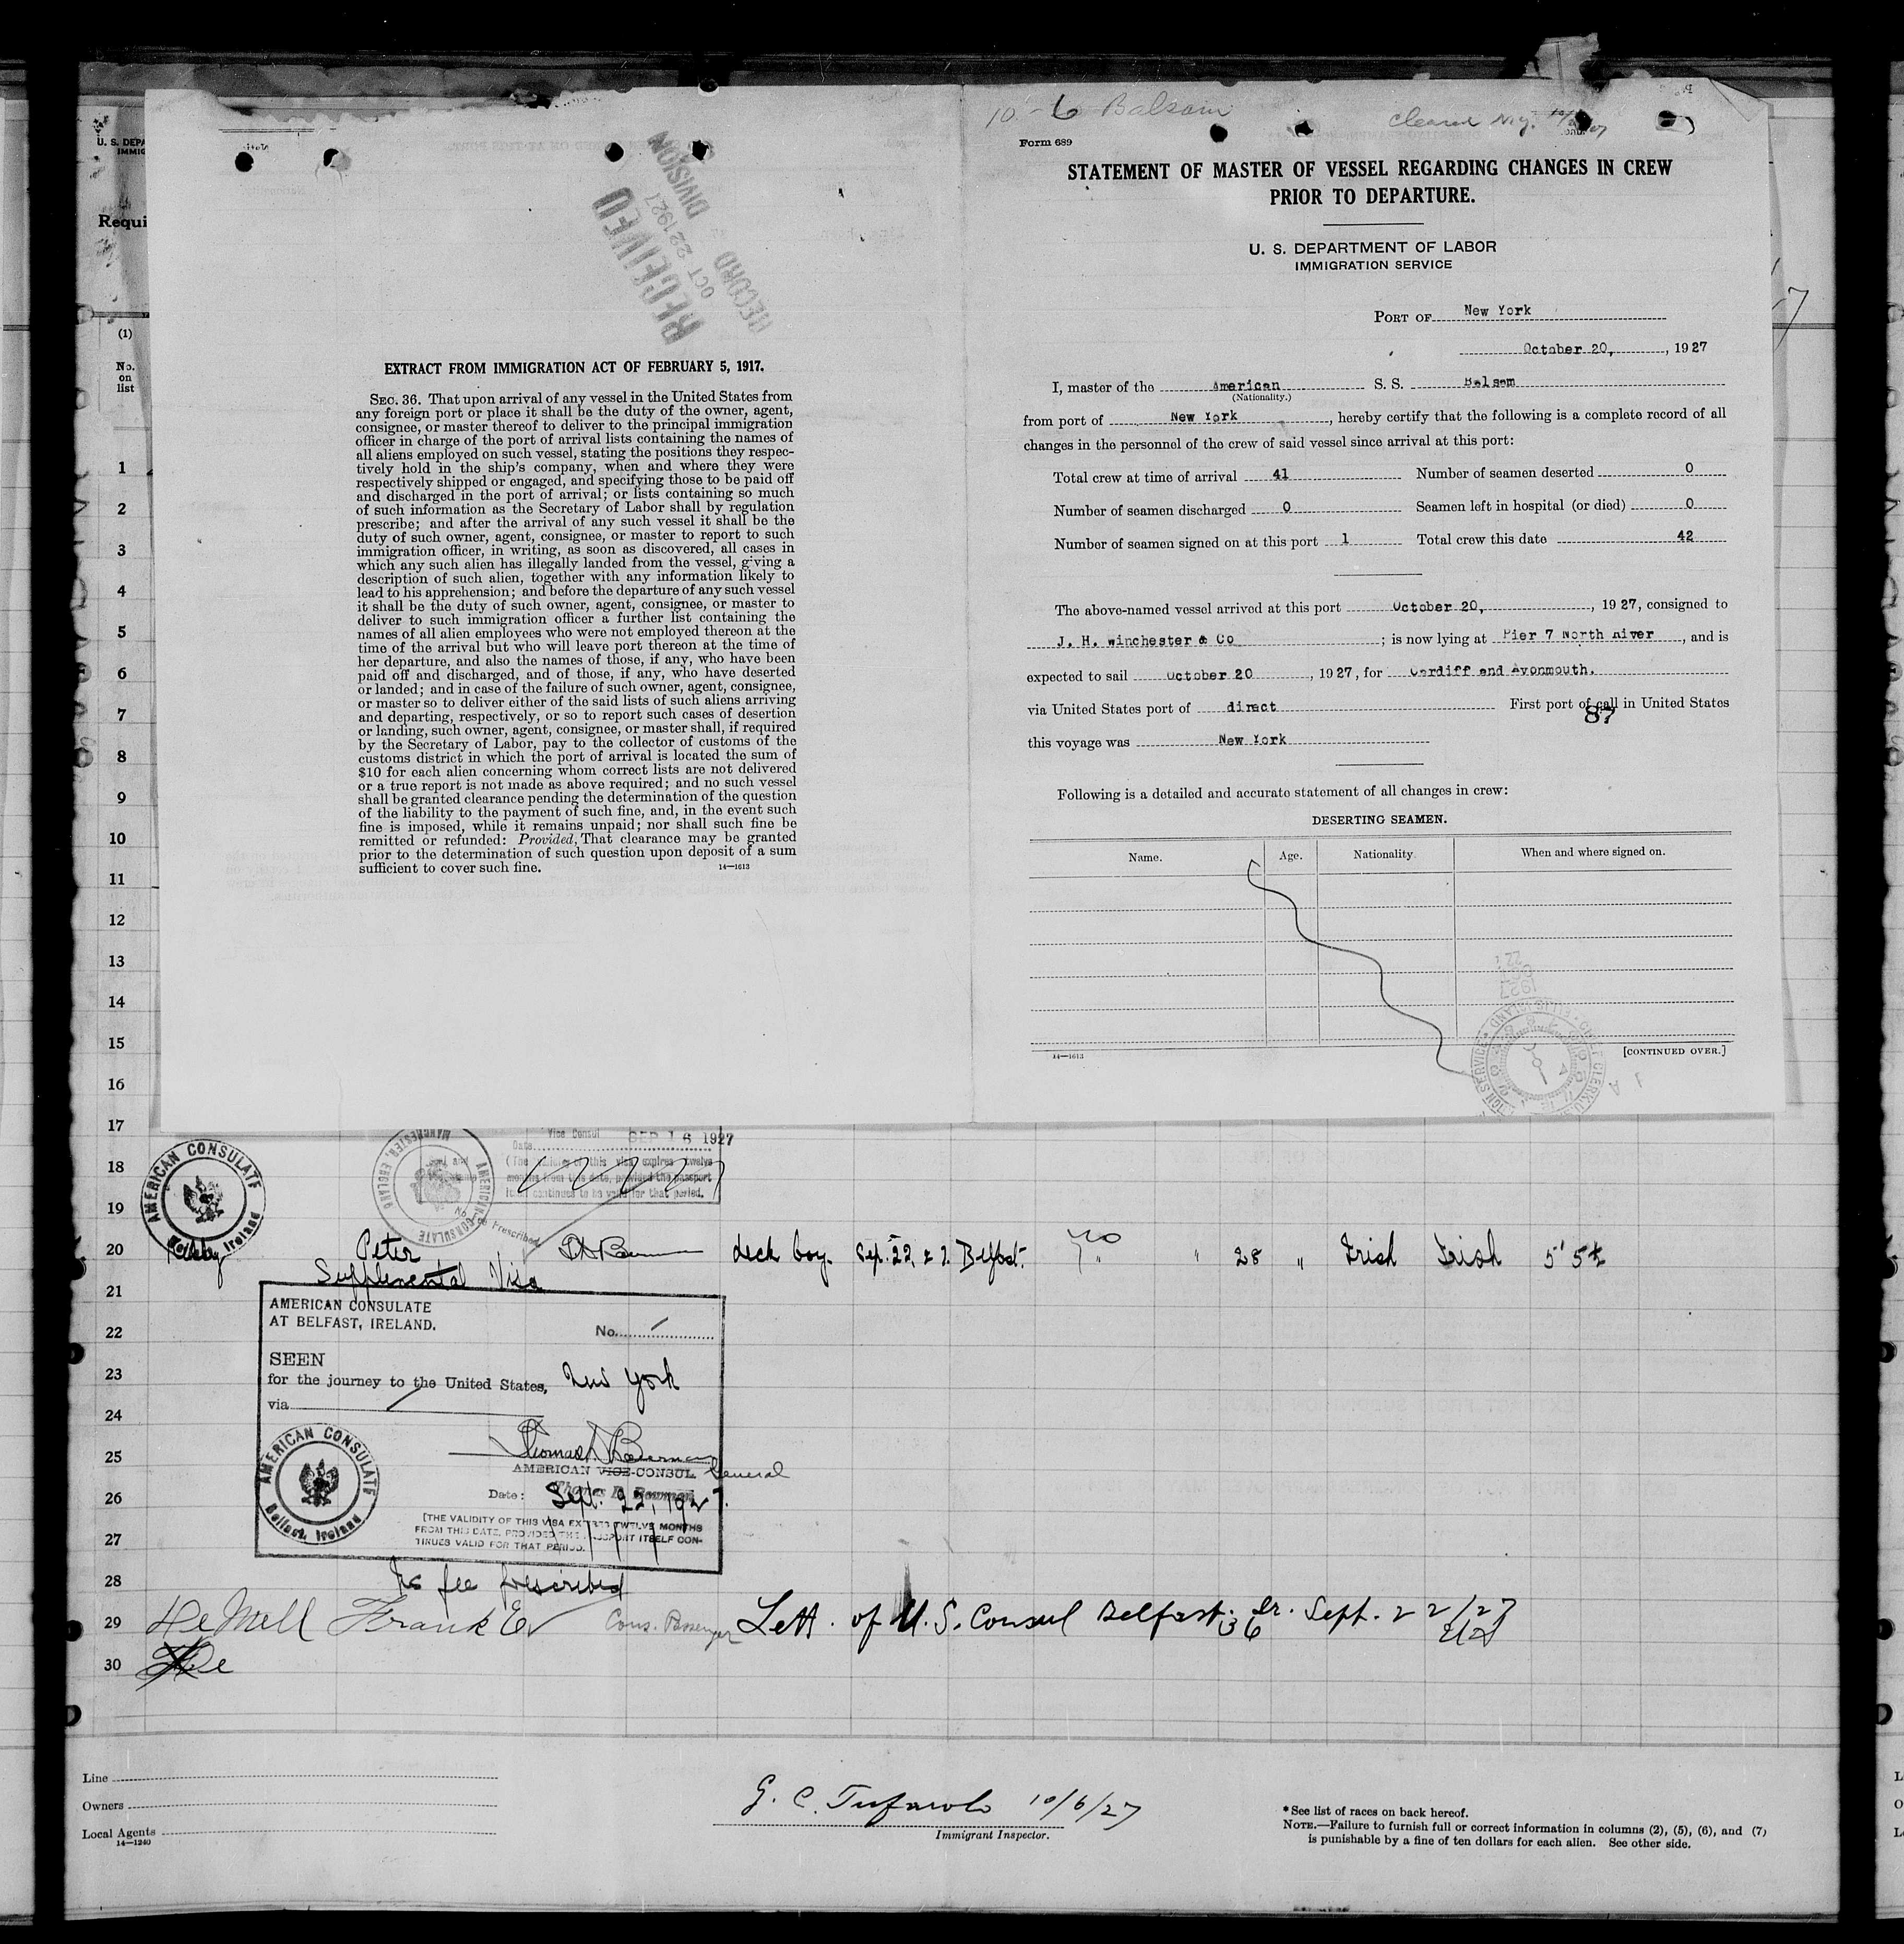 10-6 Balsam
cleared N.Y.
Form 689
STATEMENT OF MASTER OF VESSEL REGARDING CHANGES IN CREW
PRIOR TO DEPARTURE.
U. S. DEPARTMENT OF LABOR
IMMIGRATION SERVICE
PORT OF New York
October 20, , 1927
I, master of the American S. S. Balsam
(Nationality.)
from port of New York , hereby certify that the following is a complete record of all
changes in the personnel of the crew of said vessel since arrival at this port:
Total crew at time of arrival 41 Number of seamen deserted 0
Number of seamen discharged 0 Seamen left in hospital (or died) 0
Number of seamen signed on at this port 1 Total crew this date 42
The above-named vessel arrived at this port October 20, , 1927, consigned to
J. H. Winchester & Co ; is now lying at Pier 7 North River , and is
expected to sail October 20 , 1927, for Cardiff and Avonmouth.
via United States port of direct First port of call in United States
87
this voyage was New York
Following is a detailed and accurate statement of all changes in crew:
DESERTING SEAMEN.
Name. Age. Nationality. When and where signed on.
14—1613 [CONTINUED OVER.]
RECEIVED
OCT 22 1927
RECORD DIVISION
EXTRACT FROM IMMIGRATION ACT OF FEBRUARY 5, 1917.
SEC. 36. That upon arrival of any vessel in the United States from
any foreign port or place it shall be the duty of the owner, agent,
consignee, or master thereof to deliver to the principal immigration
officer in charge of the port of arrival lists containing the names of
all aliens employed on such vessel, stating the positions they respec-
tively hold in the ship's company, when and where they were
respectively shipped or engaged, and specifying those to be paid off
and discharged in the port of arrival; or lists containing so much
of such information as the Secretary of Labor shall by regulation
prescribe; and after the arrival of any such vessel it shall be the
duty of such owner, agent, consignee, or master to report to such
immigration officer, in writing, as soon as discovered, all cases in
which any such alien has illegally landed from the vessel, giving a
description of such alien, together with any information likely to
lead to his apprehension; and before the departure of any such vessel
it shall be the duty of such owner, agent, consignee, or master to
deliver to such immigration officer a further list containing the
names of all alien employees who were not employed thereon at the
time of the arrival but who will leave port thereon at the time of
her departure, and also the names of those, if any, who have been
paid off and discharged, and of those, if any, who have deserted
or landed; and in case of the failure of such owner, agent, consignee,
or master so to deliver either of the said lists of such aliens arriving
and departing, respectively, or so to report such cases of desertion
or landing, such owner, agent, consignee, or master shall, if required
by the Secretary of Labor, pay to the collector of customs of the
customs district in which the port of arrival is located the sum of
$10 for each alien concerning whom correct lists are not delivered
or a true report is not made as above required; and no such vessel
shall be granted clearance pending the determination of the question
of the liability to the payment of such fine, and, in the event such
fine is imposed, while it remains unpaid; nor shall such fine be
remitted or refunded: Provided, That clearance may be granted
prior to the determination of such question upon deposit of a sum
sufficient to cover such fine. 14—1613
U. S. DEPA
IMMIG
Requi
(1)
No.
on
list
1
2
3
4
5
6
7
8
9
10
11
12
13
14
15
16
17
18
19
20
21
22
23
24
25
26
27
28
29
30
Vice Consul
Date SEP 16 1927
(The validity of this visa expires twelve
months from this date, provided the passport
itself continues to be valid for that period.
No Fee Prescribed
AMERICAN CONSULATE MANCHESTER, ENGLAND
AMERICAN CONSULATE Ireland
Peter deck boy. Sep. 22, 27. Belfast. no " " 28 " Irish Irish 5' 5½
Supplemental Visa
AMERICAN CONSULATE
AT BELFAST, IRELAND. No.
SEEN
for the journey to the United States, New York
via
AMERICAN CONSULATE Belfast, Ireland
AMERICAN VICE-CONSUL General
Date: Sept. 22, 1927.
[THE VALIDITY OF THIS VISA EXPIRES TWELVE MONTHS
FROM THIS DATE, PROVIDED THE PASSPORT ITSELF CON-
TINUES VALID FOR THAT PERIOD.
No fee prescribed
De Mell Frank E. Cons. Passenger Lett. of U.S. Consul Belfast. Ir. Sept. 22/27
36
De
Line
Owners
Local Agents
14—1240
G. C. Tufarolo 10/6/27
Immigrant Inspector.
*See list of races on back hereof.
NOTE.—Failure to furnish full or correct information in columns (2), (5), (6), and (7)
is punishable by a fine of ten dollars for each alien. See other side.